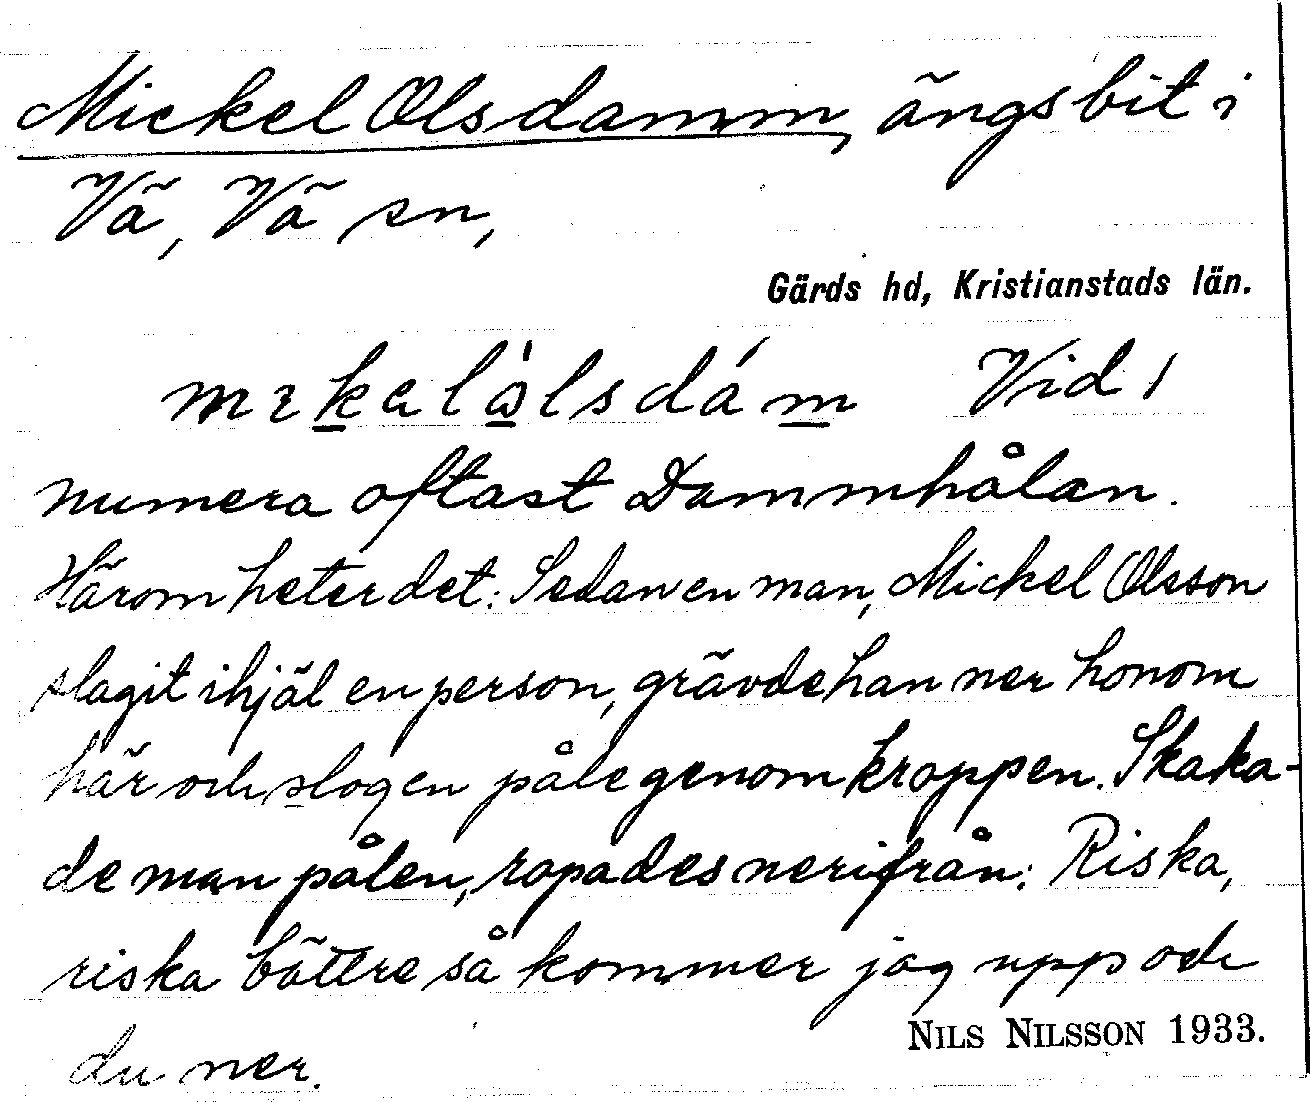 Mickel Olsdamm, ängsbit i
Vä, Vä sn,
Gärds hd, Kristianstads län.
Vid 1
numera oftast Dammhålan.
Härom heter det: Sedan en man, Mickel Olsson
slagit ihjäl en person, grävde han ner honom
här och slog en påle genom kroppen. Skaka-
de man pålen, ropades nerifrån: Riska,
riska bättre så kommer jag upp och
du ner.
NILS NILSSON 1933.